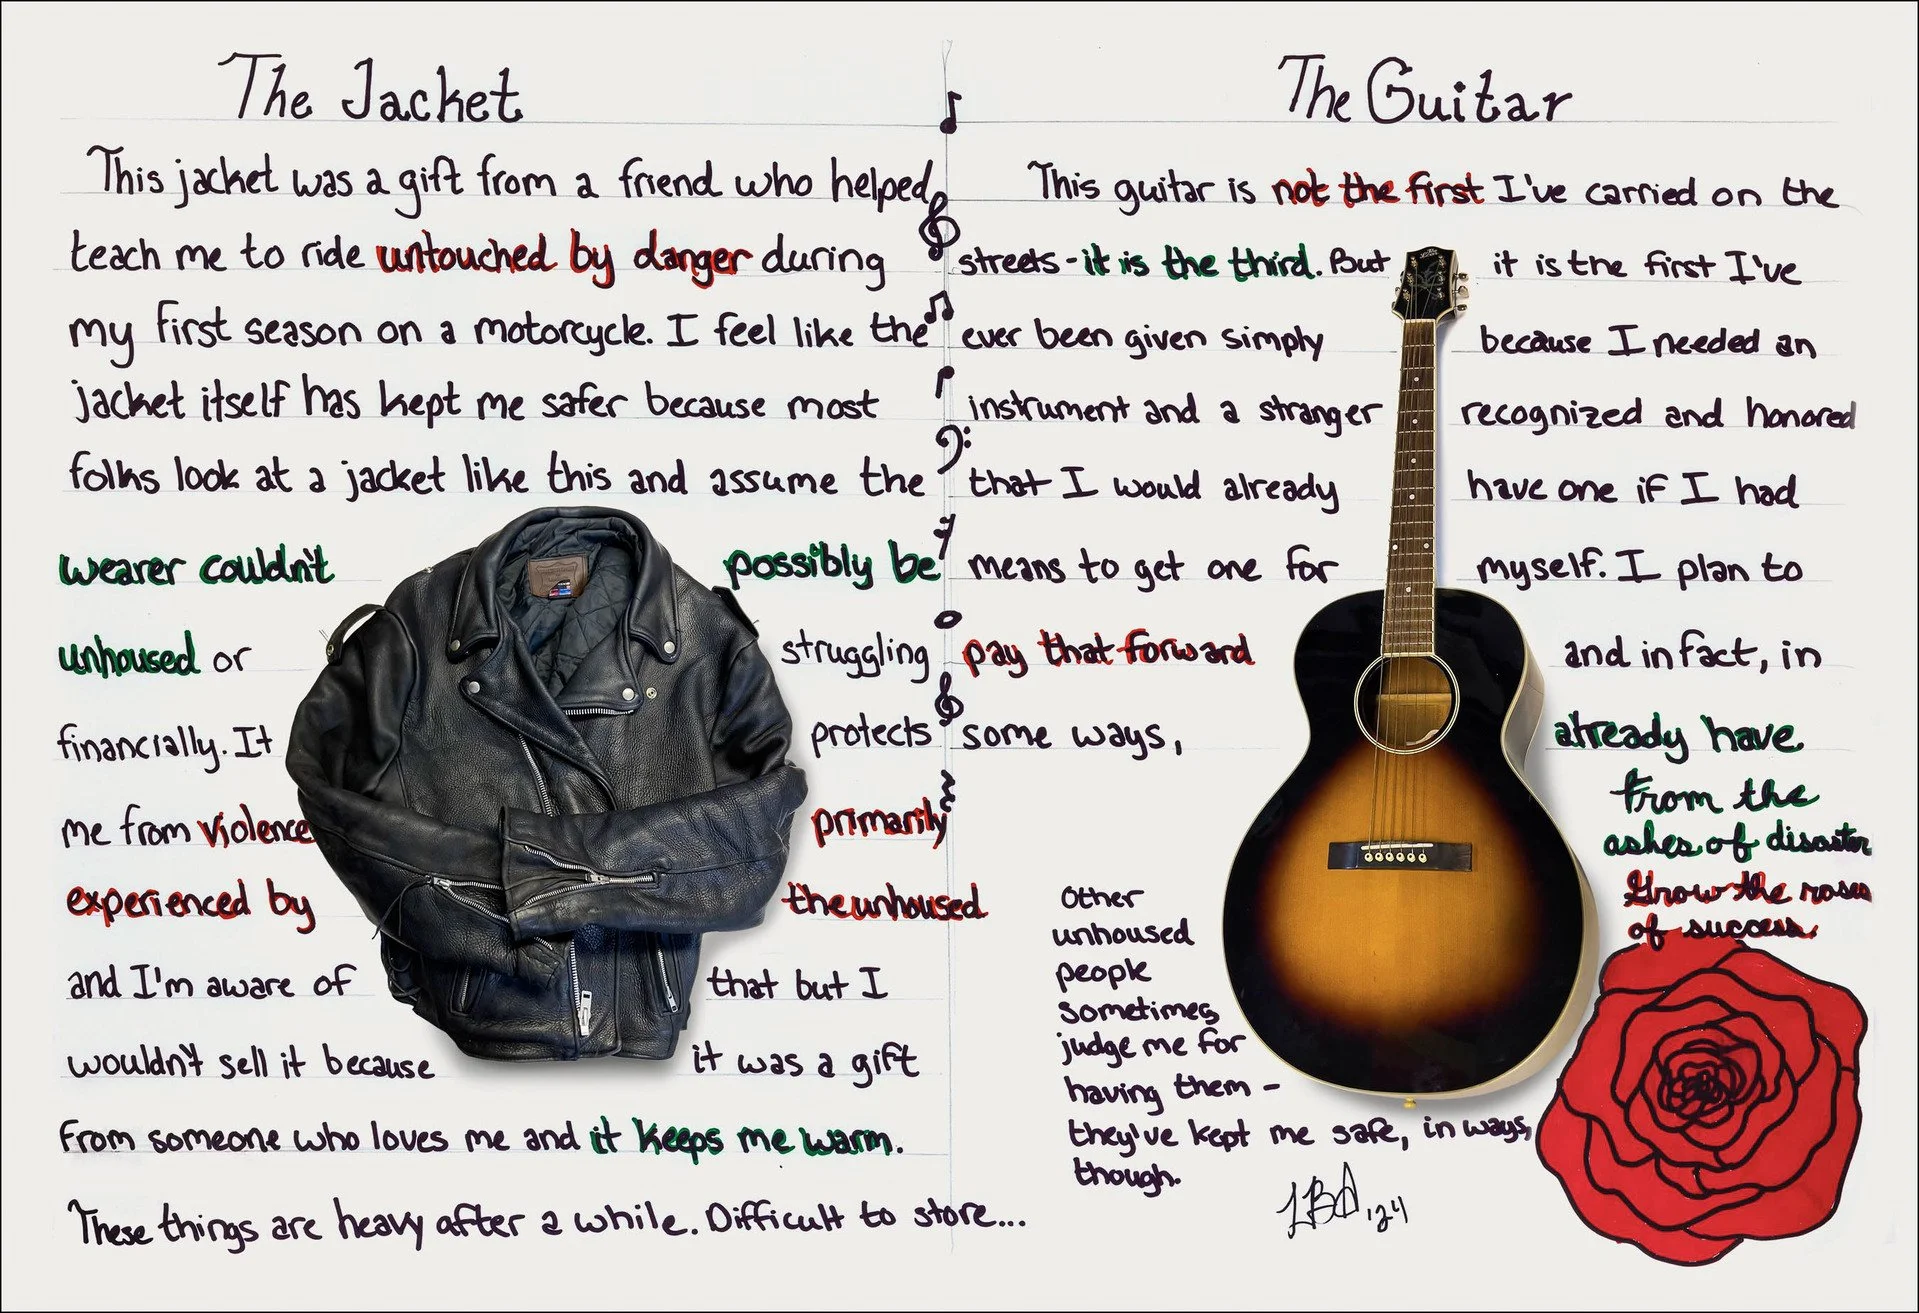 The Jacket
This jacket was a gift from a friend who helped
teach me to ride untouched by danger during
my first season on a motorcycle. I feel like the
jacket itself has kept me safer because most
folks look at a jacket like this and assume the
wearer couldn't possibly be
unhoused or struggling
financially. It protects
me from violence primarily
experienced by the unhoused
and I'm aware of that but I
wouldn't sell it because it was a gift
from someone who loves me and it keeps me warm.
These things are heavy after a while. Difficult to store...
The Guitar
This guitar is not the first I've carried on the
streets - it is the third. But it is the first I've
ever been given simply because I needed an
instrument and a stranger recognized and honored
that I would already have one if I had
means to get one for myself. I plan to
pay that forward and in fact, in
some ways, already have
From the
ashes of disaster
Grow the roses
of success.
Other
unhoused
people
sometimes
judge me for
having them -
they've kept me safe, in ways,
though.
LBA '24